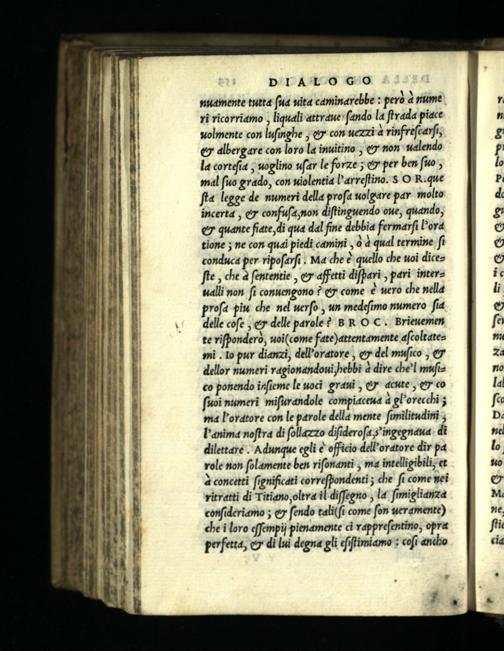 DIALOGO
nuamente tutta sua uita caminarebbe : però à nume
ri ricorriamo , liquali attrauersando la strada piace
uolmente con lusinghe , & con uezzi à rinfrescarsi,
& albergare con loro la inuitino , & non ualendo
la cortesia , uoglino usar le forze ; & per ben suo ,
mal suo grado, con uiolentia l'arrestino. SOR. que
sta legge de numeri della prosa uolgare par molto
incerta , & confusa, non distinguendo oue, quando,
& quante fiate, di qua dal fine debbia fermarsi l'ora
tione ; ne con quai piedi camini , ò à qual termine si
conduca per riposarsi . Ma che è quello che uoi dice=
ste , che à sententie , & affetti dispari , pari inter=
ualli non si conuengono ? & come è uero che nella
prosa piu che nel uerso , un medesimo numero sia
delle cose , & delle parole ? BROC. Brieuemen
te risponderò, uoi (come fate) attentamente ascoltate=
mi . Io pur dianzi, dell'oratore , & del musico , &
dellor numeri ragionandoui, hebbi à dire che'l musi=
co ponendo insieme le uoci graui , & acute , & co
suoi numeri misurandole compiaceua à gl'orecchi ;
ma l'oratore con le parole della mente similitudini ,
l'anima nostra di sollazzo disiderosa, s'ingegnaua di
dilettare . Adunque egli è officio dell'oratore dir pa
role non solamente ben risonanti , ma intelligibili, et
à concetti significati correspondenti ; che si come nei
ritratti di Titiano, oltra il dissegno , la simiglianza
consideriamo ; & sendo tali (si come son ueramente)
che i loro essempij pienamente ci rappresentino, opra
perfetta, & di lui degna gli esistimiamo : cosi ancho